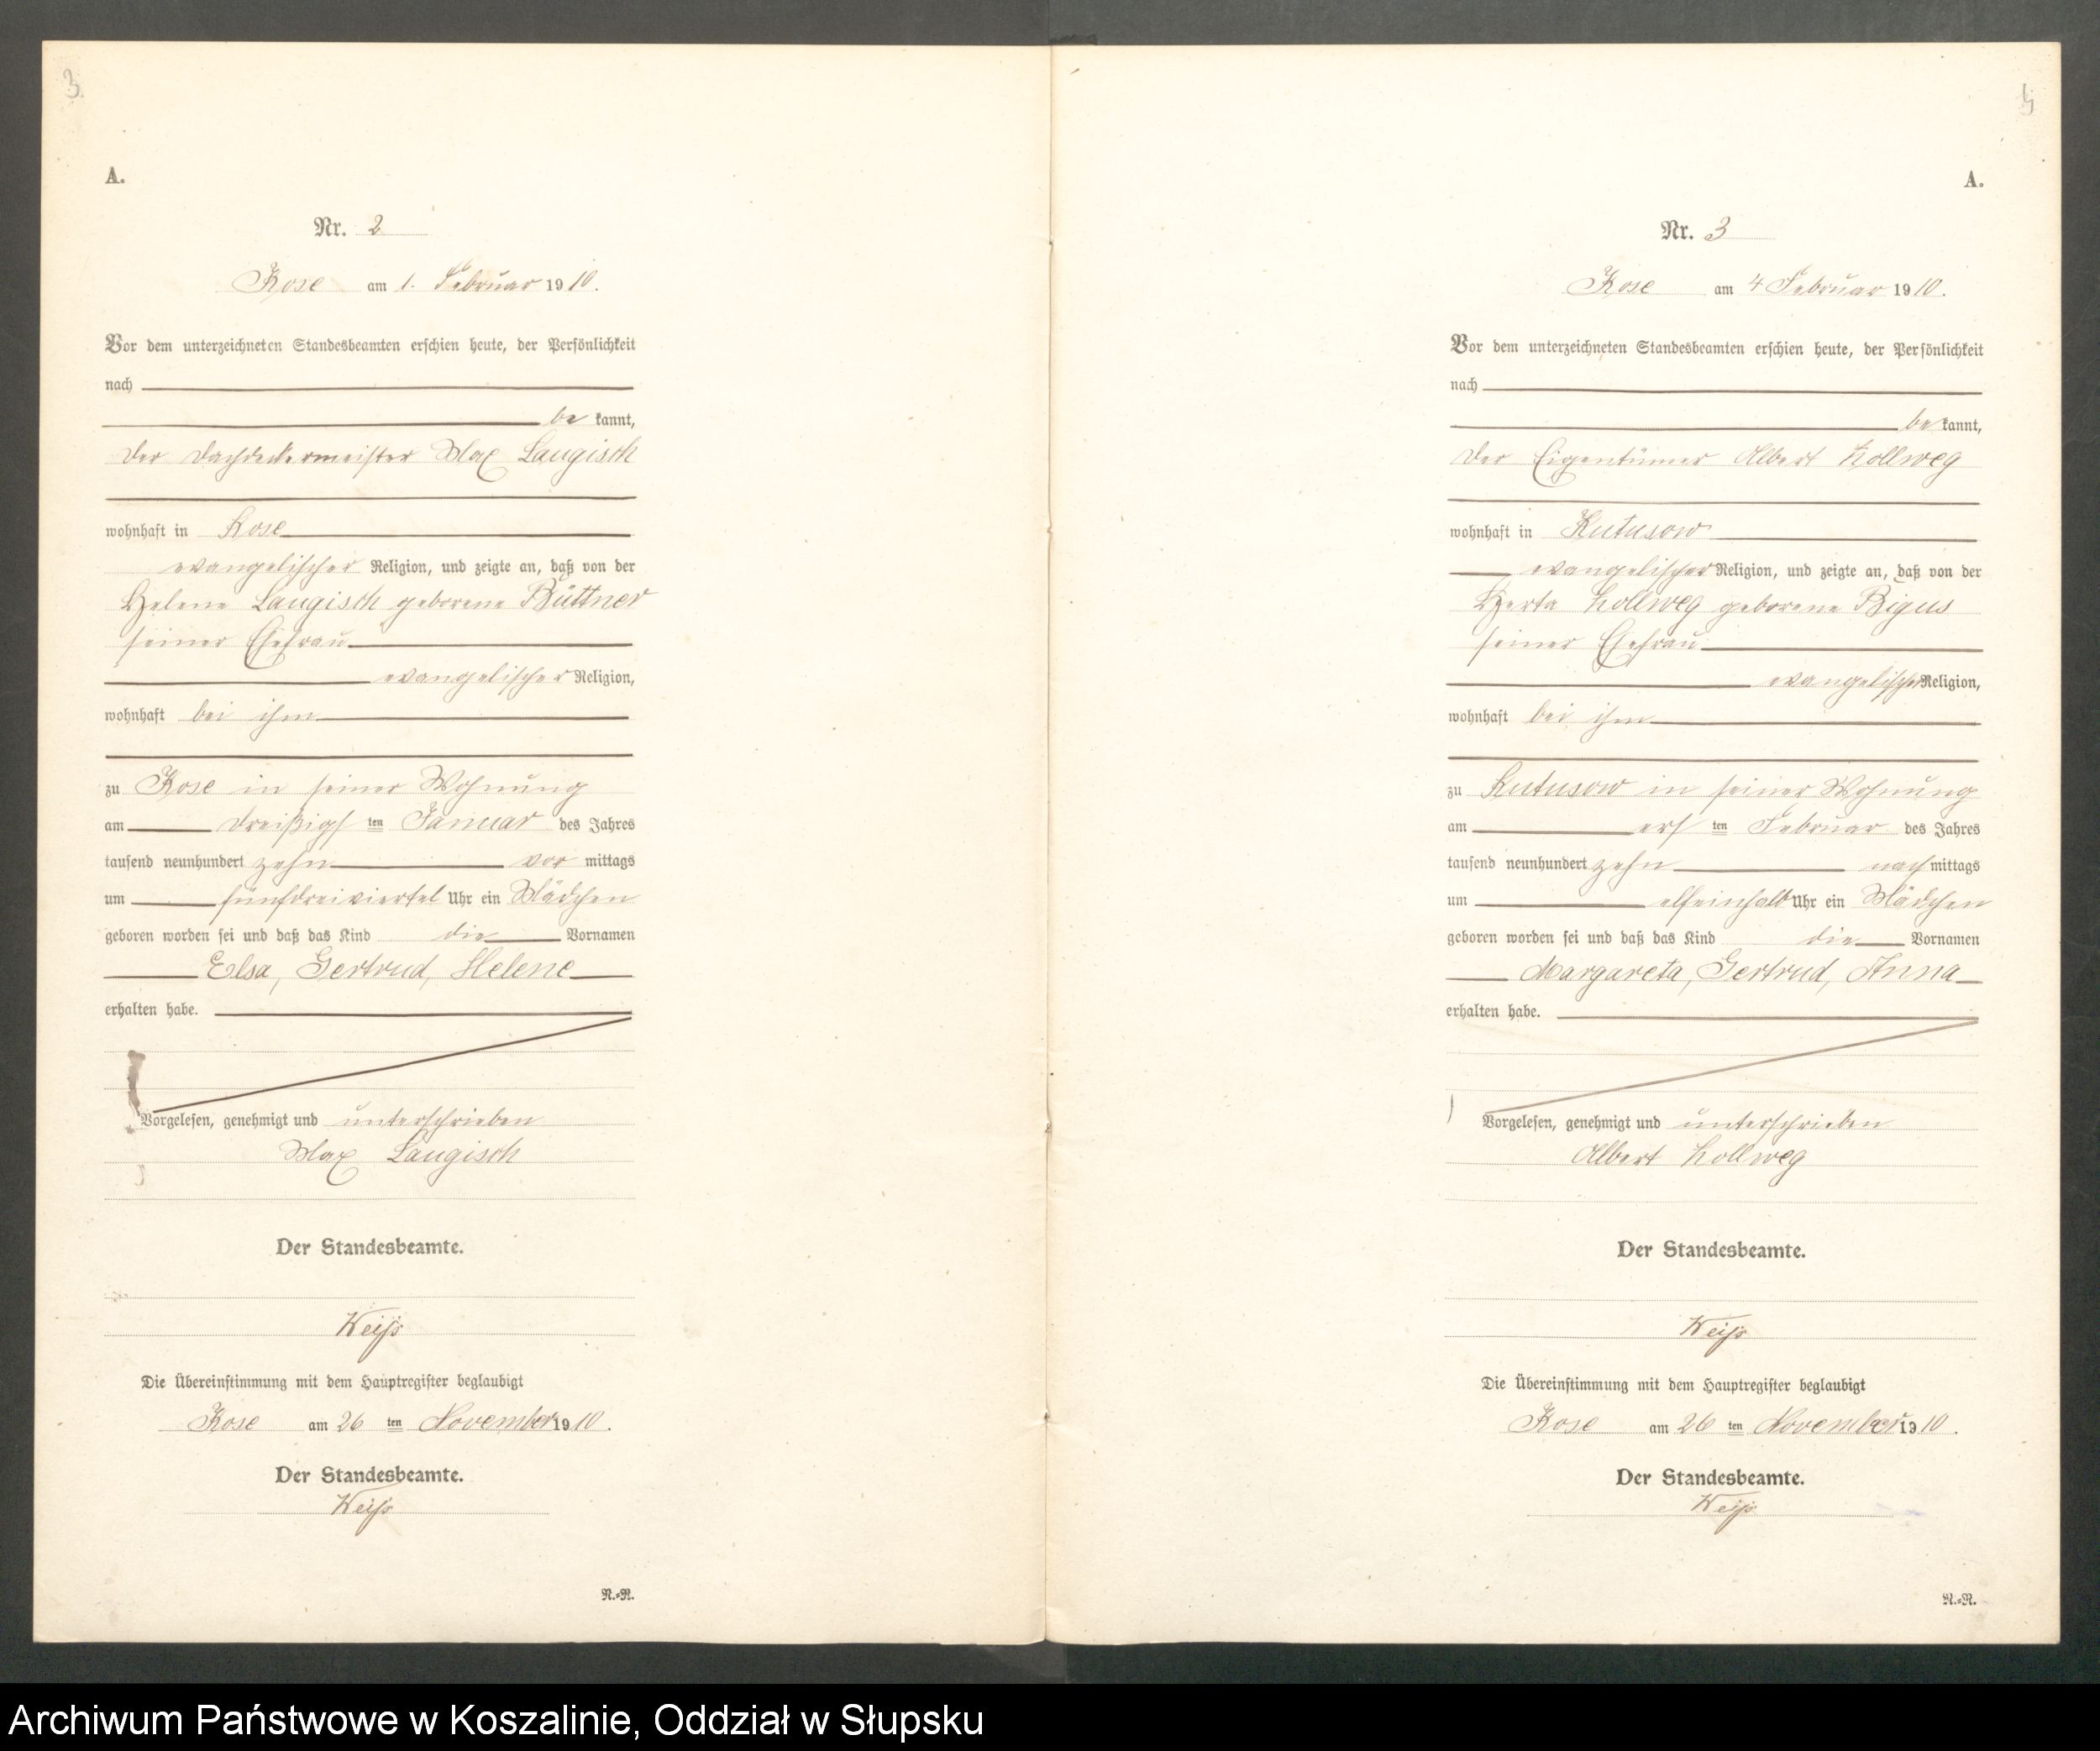 3
A.
Nr. 2
Rose am 1. Februar 1910.
Vor dem unterzeichneten Standesbeamten erschien heute, der Persönlichkeit
nach
be kannt,
der Dachdeckermeister Max Laugisch
wohnhaft in Rose
evangelischer Religion, und zeigte an, daß von der
Helene Laugisch geborene Büttner
seiner Ehefrau
evangelischer Religion,
wohnhaft bei ihm
zu Rose in seiner Wohnung
am dreißigsten Januar des Jahres
tausend neunhundert zehn vor mittags
um fünfdreiviertel Uhr ein Mädchen
geboren worden sei und daß das Kind die Vornamen
Elsa, Gertrud, Helene
erhalten habe.
Vorgelesen, genehmigt und unterschrieben
Max Laugisch
Der Standesbeamte.
Weiß
Die Übereinstimmung mit dem Hauptregister beglaubigt
Rose am 26 ten November 1910.
Der Standesbeamte.
Weiß
R.=R.
A.
Nr. 3
Rose am 4 Februar 1910.
Vor dem unterzeichneten Standesbeamten erschien heute, der Persönlichkeit
nach
be kannt,
der Eigentümer Albert Kollweg
wohnhaft in Kutusow
evangelischer Religion, und zeigte an, daß von der
Herta Kollweg geborene Bigus
seiner Ehefrau
evangelischer Religion,
wohnhaft bei ihm
zu Kutusow in seiner Wohnung
am ersten Februar des Jahres
tausend neunhundert zehn nach mittags
um elfeinhalb Uhr ein Mädchen
geboren worden sei und daß das Kind die Vornamen
Margareta, Gertrud, Anna
erhalten habe.
Vorgelesen, genehmigt und unterschrieben
Albert Kollweg
Der Standesbeamte.
Weiß
Die Übereinstimmung mit dem Hauptregister beglaubigt
Rose am 26 ten November 1910.
Der Standesbeamte.
Weiß
R.=R.
Archiwum Państwowe w Koszalinie, Oddział w Słupsku